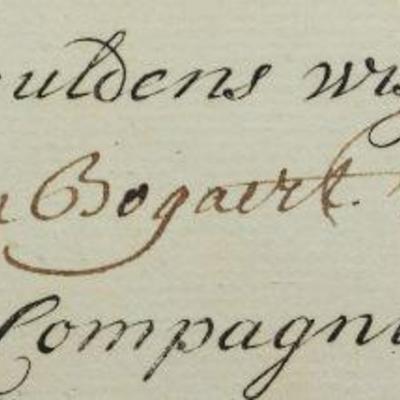 uldens wy
Bogaert.
Compagni